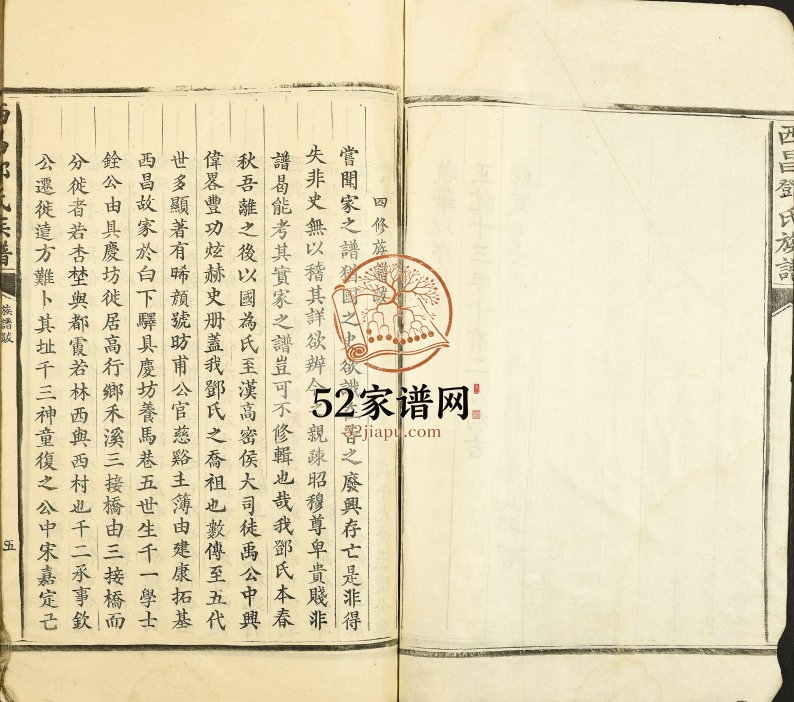 西昌鄧氏族譜
四修族譜跋
嘗聞家之譜猶國之史欲識之廢興存亡是非得
失非史無以稽其詳欲辨親疎昭穆尊卑貴賤非
譜曷能考其實家之譜豈可不修輯也哉我鄧氏本春
秋吾離之後以國為氏至漢高密侯大司徒禹公中興
偉畧豐功炫赫史册蓋我鄧氏之喬祖也數傳至五代
世多顯著有晞顏號昉甫公官慈谿主簿由建康拓基
西昌故家於白下驛具慶坊養馬巷五世生千一學士
銓公由具慶坊徙居高行鄉禾溪三接橋由三接橋而
分徙者若杏埜與都霞若林西與西村也千二承事欽
公遷徙遠方難卜其址千三神童復之公中宋嘉定己
氏族譜
族譜跋
五
52家谱网
52jiapu.com